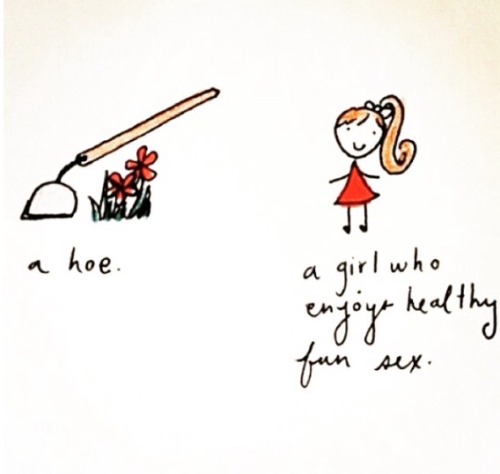 a hoe.
a girl who
enjoys healthy
fun sex.